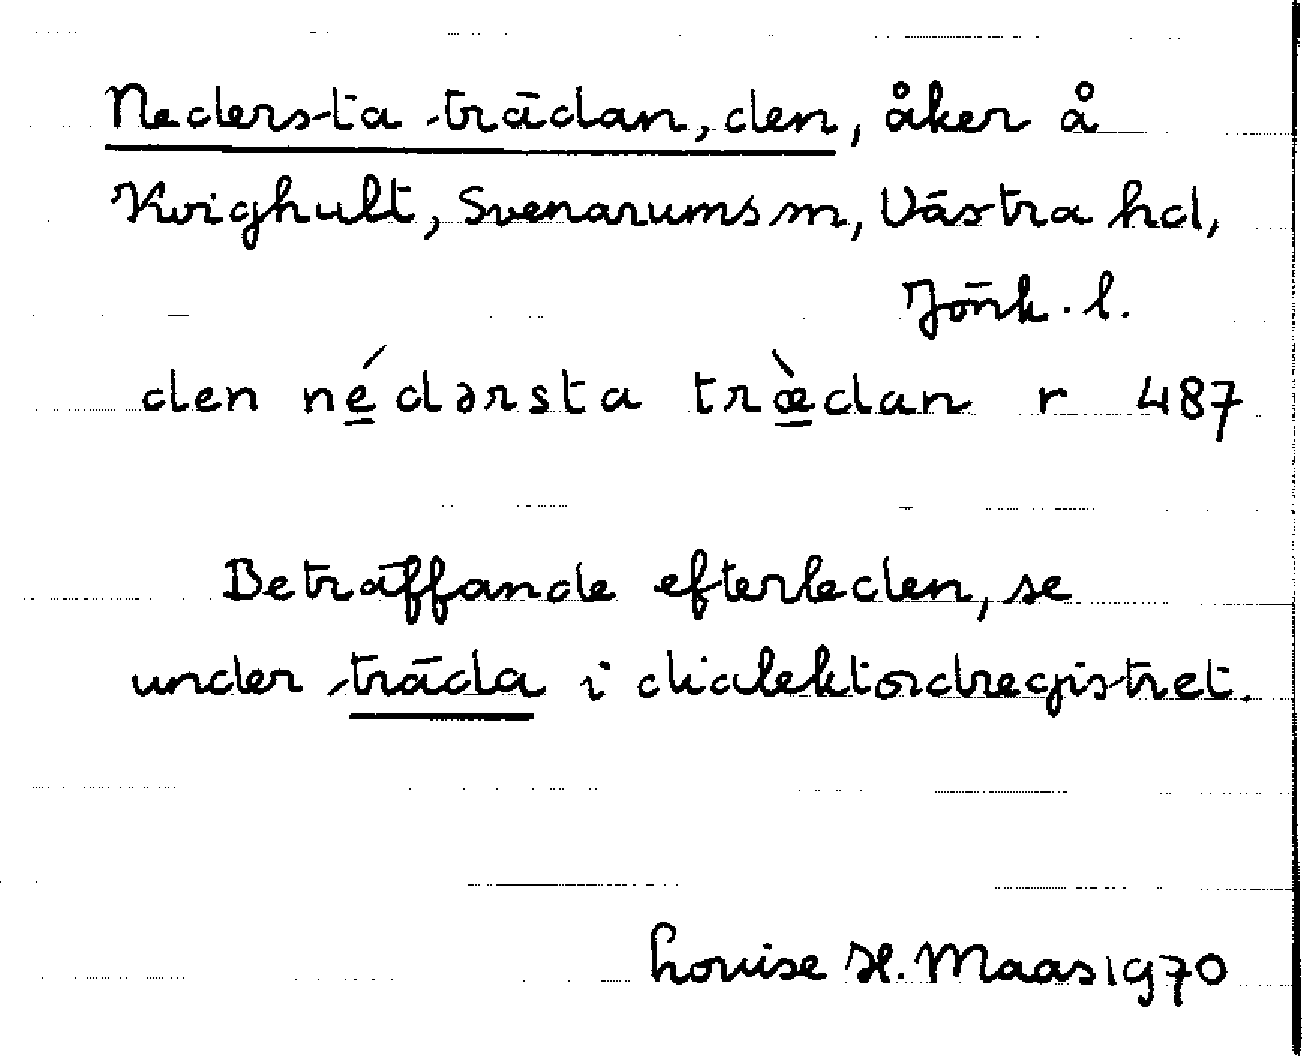 Nedersta trädan, den, åker å
Kvighult, Svenarums sn, Västra hd,
Jönk. l.
den né̲dərsta træ̲̀dan r 487
Beträffande efterleden, se
under träda i dialektordregistret.
Louise H. Maas 1970